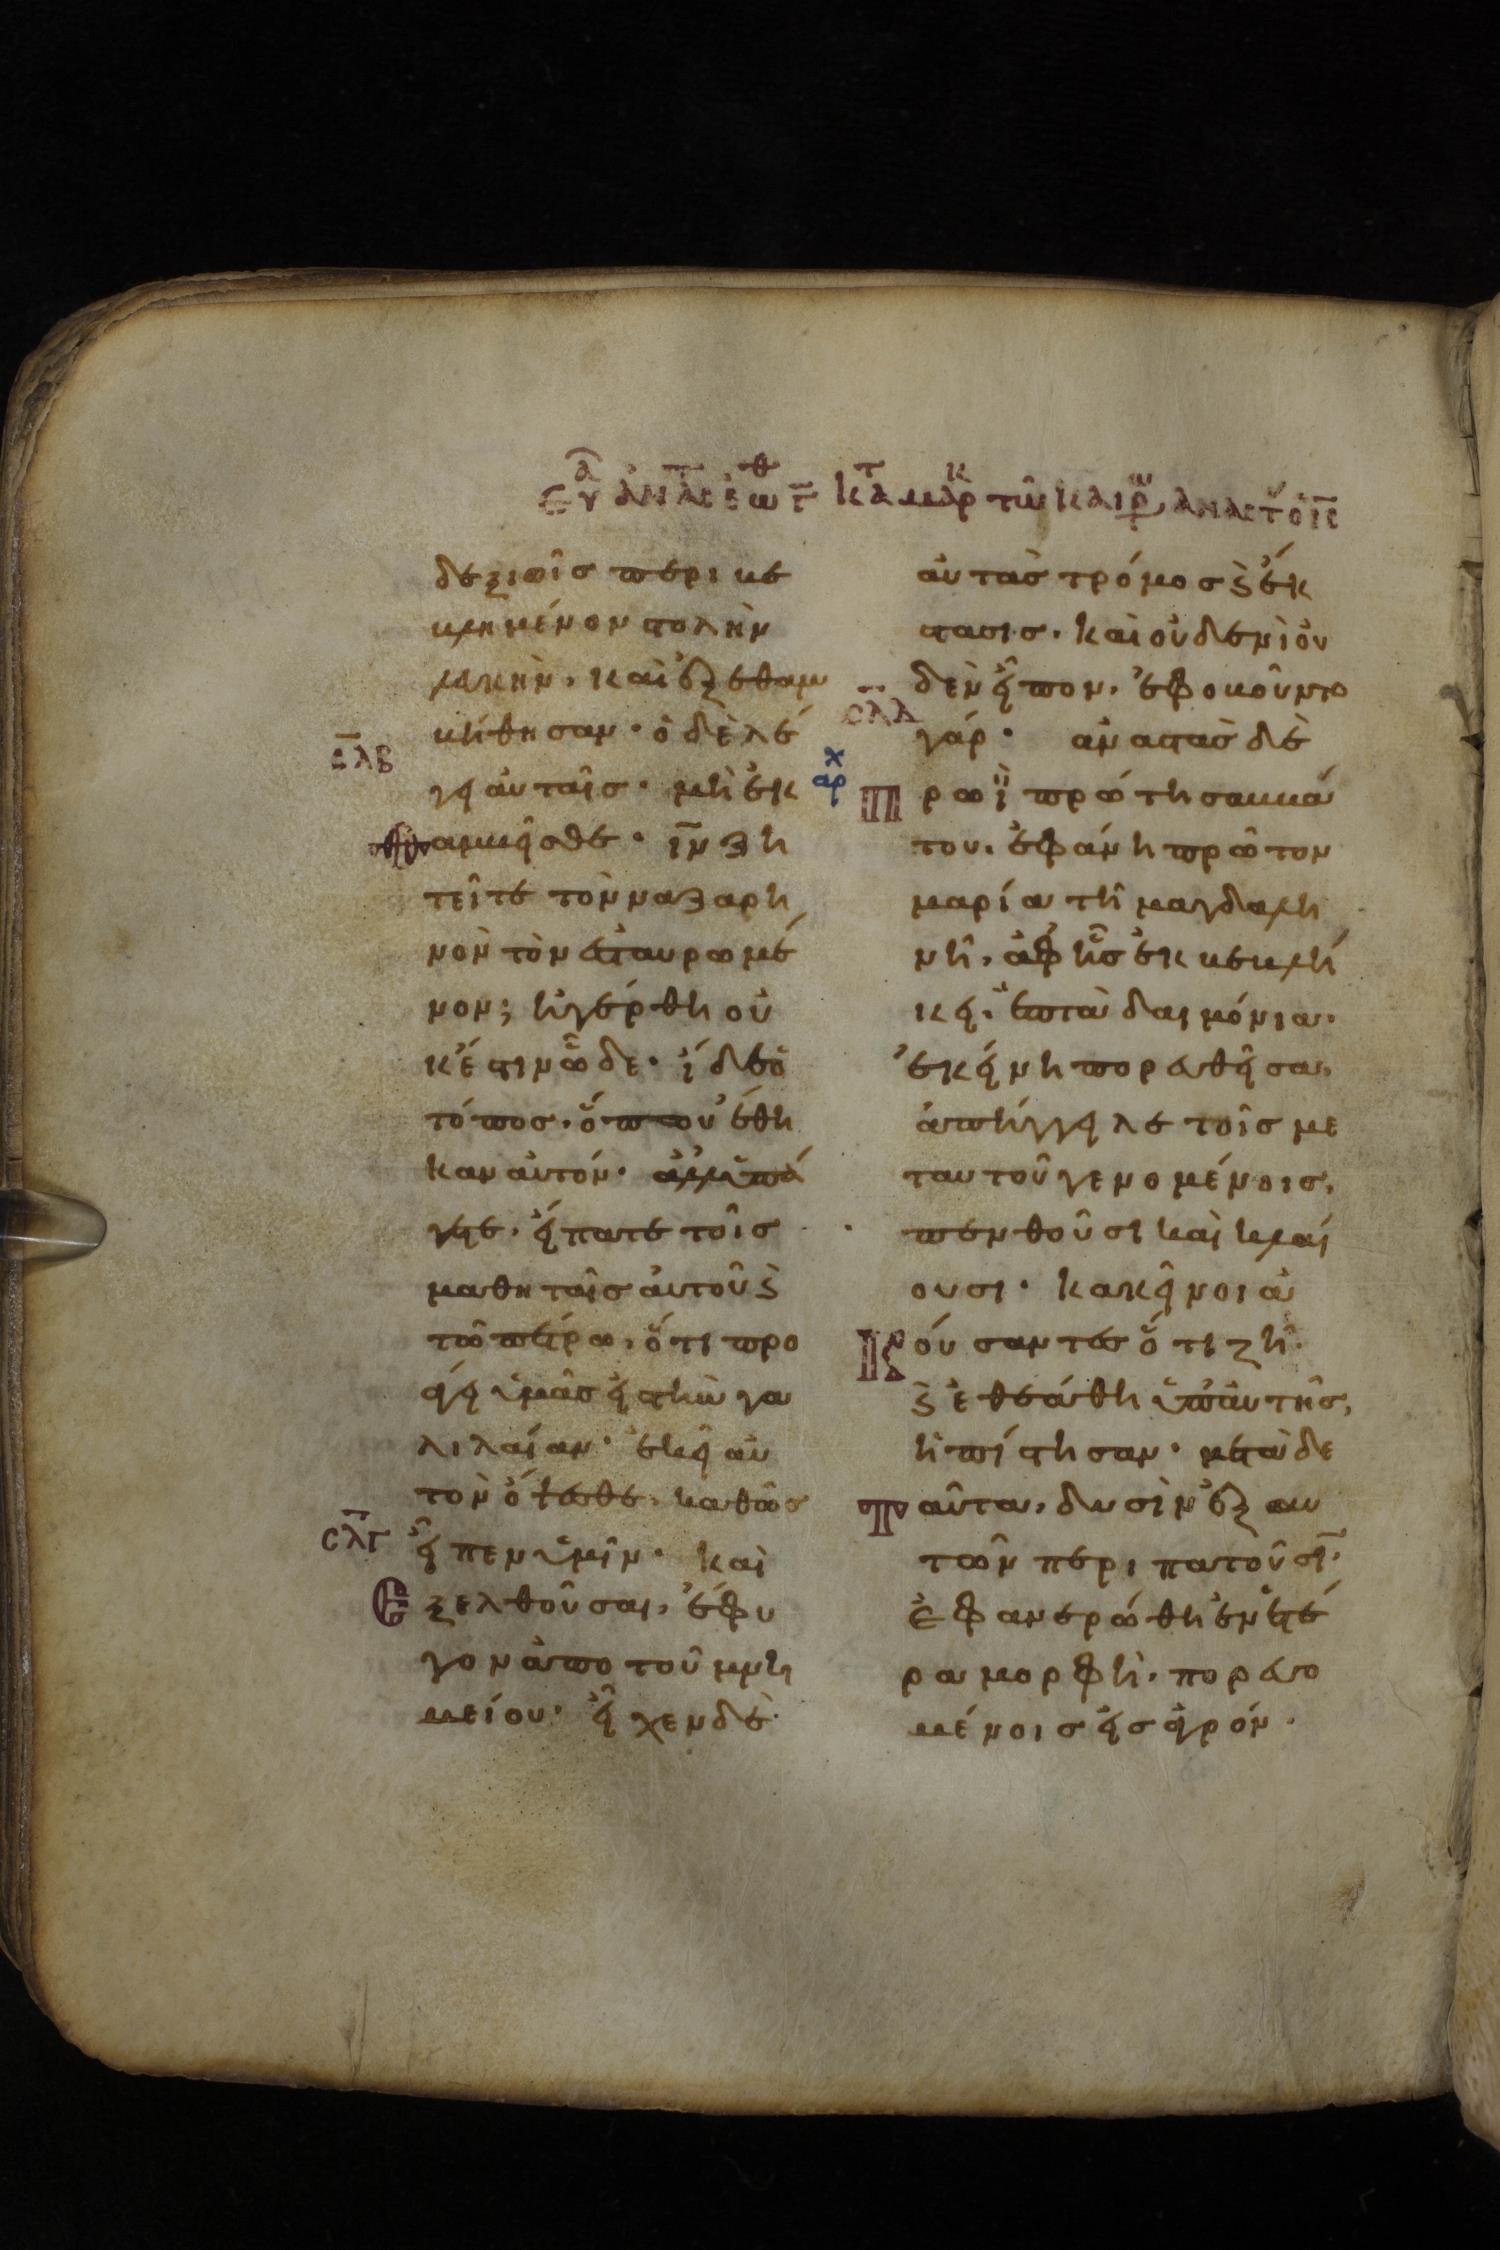 δεξιοῖς περικε
κλημένον στολὴν
λευκὴν, καὶ ἐξεθαμ
βήθησαν· ὁ δὲ λέ
σλβ
γει αὐταῖς· μὴ ἐκ
θαμβεῖσθε· ιν ζη
τεῖτε τὸν ναζαρη
νὸν τὸν ἐσταυρωμέ
νον; ἠγέρθη οὐ
κ ἔστιν ὧδε· ἴδε ὁ
τόπος, ὅπου ἔθη
καν αὐτόν· ἀλλ' ὑπά
γετε, εἴπατε τοῖς
μαθηταῖς αὐτοῦ ϗ
τῶ πέτρω, ὅτι προ
άγει ὑμᾶς εἰς τὴν γα
λιλαίαν· ἐκεῖ αὐ
τὸν ὄψεσθε, καθὼς
σλγ
εἶπεν ὑμῖν· καὶ
Εξελθοῦσαι, ἔφυ
γον ἀπο τοῦ μνη
μείου· εἶχεν δὲ
αὐτὰς τρόμος ϗ ἔκ
στασις. καὶ οὐδενὶ οὐ
δὲν εἶπον, ἐφοβοῦντο
σλδ
γάρ· ἀναστὰς δὲ
αρχ
Πρωῒ πρώτη σαββά
του, ἐφάνη πρῶτον
μαρία τῆ μαγδαλη
νῆ, ἀφ ἧς ἐκβεβλή
κει ἑπτὰ δαιμόνια.
ἐκείνη πορευθεῖσα,
ἀπήγγειλε τοῖς με
τ αυτοῦ γενομένοις,
πενθοῦσι καὶ κλαί
ουσι· κακεῖνοι ἀ
Κούσαντες ὅτι ζῆ
ϗ ἐθεάθη ὑπ αὐτῆς,
ἠπίστησαν· μετὰ δε
Ταῦτα, δυσὶν ἐξ αυ
τῶν περιπατοῦσιν
ἐφανερώθη ἐν ἑτέ
ρα μορφῆ, πορευο
μένοις εἰς ἀγρόν·